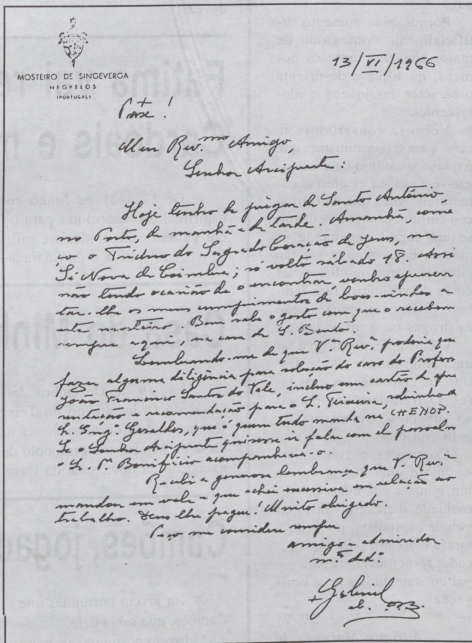 MOSTEIRO DE SINGEVERGA
NEGRELOS
(PORTUGAL)
13/VI/1966
Pax!
Meu Rev.mo Amigo,
Senhor Arcipreste:
Hoje tenho de pregar de Santo António,
no Porto, de manhã e de tarde. Amanhã, come
ço o Tríduo do Sagrado Coração de Jesus, na
Sé Nova de Coimbra; só volto sábado 18. Assi
não tendo ocasião de o encontrar, venho apresen
tar-lhe os meus cumprimentos de boas-vindas a
este mosteiro. Bem sabe o gosto com que o recebem
sempre aqui em casa de S. Bento.
Lembrando-me de que V.ª Rev.ª poderia que
fazer alguma diligência para solução do caso do Profess
João Francisco Santos do Vale, incluo um cartão de apre
sentação e recomendação para o S. Teixeira, adjunto do
S. Eng.º Geraldes, que é quem tudo manda na CHENOP.
Se o Senhor Arcipreste quisesse ir falar com ele pessoalm
o S. P. Bonifácio acompanhava-o.
Recebi a generosa lembrança que V.ª Rev.ª
mandou em vale e que achei excessiva em relação ao
trabalho. Deus lhe pague! Muito obrigado.
Peço me considere sempre
amigo e admirador
m.to ded.º
+ Gabriel